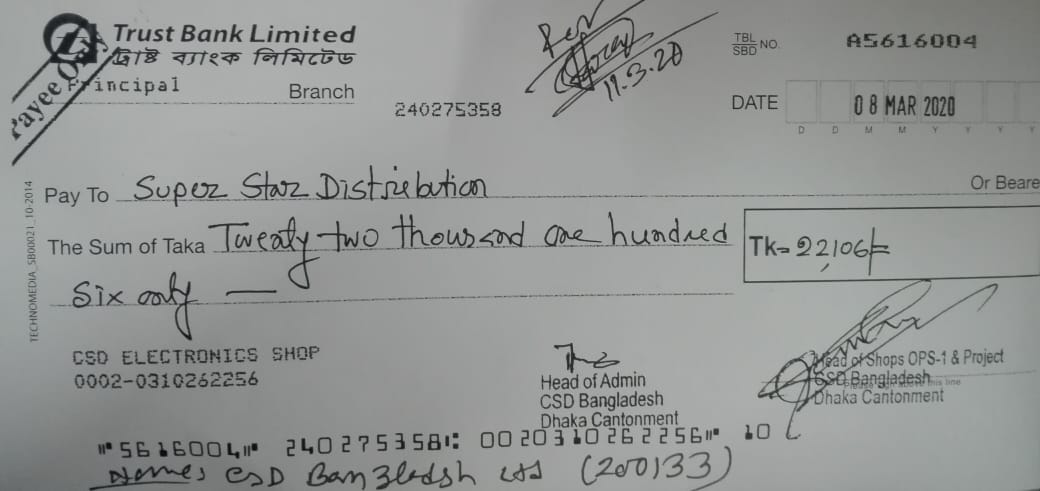 Trust Bank Limited
ট্রাষ্ট ব্যাংক লিমিটেড
Payee Only
Principal
Branch
240275358
11.3.20
TBL
SBD NO.
A5616004
DATE
08 MAR 2020
D D M M Y Y Y Y
Pay To Super Star Distribution
Or Beare
The Sum of Taka Twenty two thousand one hundred
Tk= 22,106/=
Six only —
TECHNOMEDIA_SB00021_10-2014
CSD ELECTRONICS SHOP
0002-0310262256
Head of Admin
CSD Bangladesh
Dhaka Cantonment
Head of Shops OPS-1 & Project
CSD Bangladesh
Please sign above this line
Dhaka Cantonment
⑈5616004⑈ 240275358⑆ 0020310262256⑈ 10
CSD Bangladesh Ltd (200133)